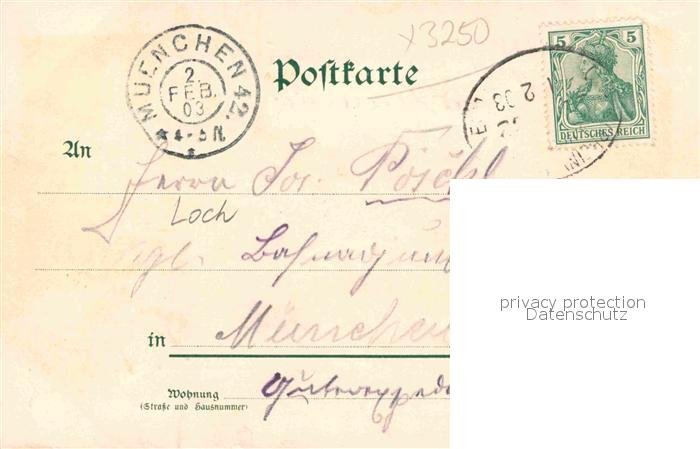 x3250
MUENCHEN 42.
2.
FEB.
03
4-5 N.
Postkarte
5 5
DEUTSCHES REICH
2 03
An
Herrn Jos. Pöschl
Loch
kgl.
in München
Wohnung
(Straße und Hausnummer)
privacy protection
Datenschutz